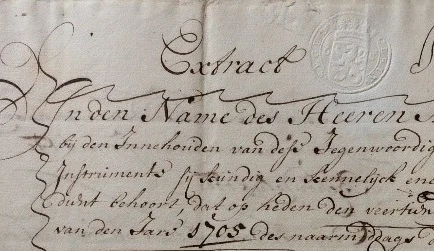 Extract
In den Name des Heeren
bij den Innehouden van dese Jegenwoordig
Instruments sij kundig en kennelijck een
dient behoort, dat op heden den veertien
van den Jare 1705 des naarmiddags